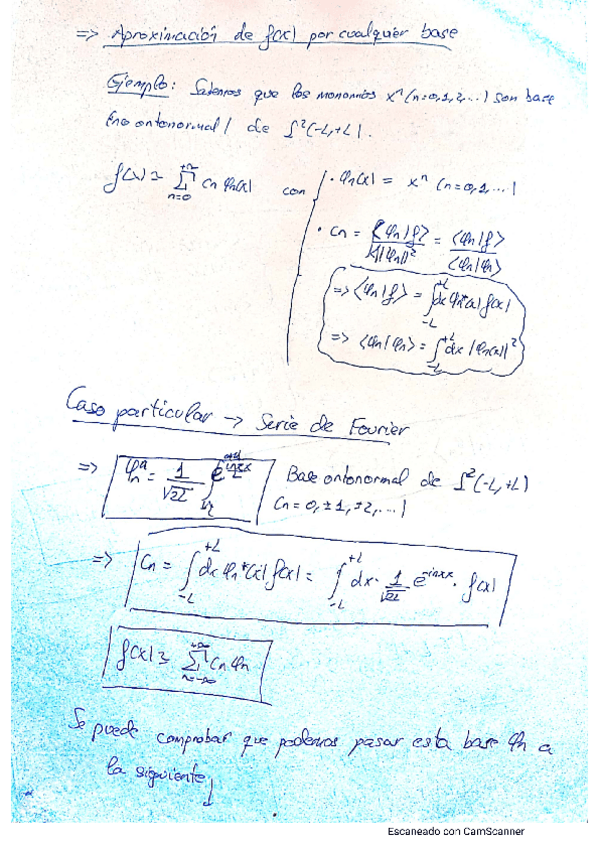 => Aproximación de f(x) por cualquier base
Ejemplo: Sabemos que los monomios xⁿ (n=0,1,2,...) son base
(no ortonormal) de L²(-L,+L).
f(x) ≈ Σ_{n=0}^{+∞} cn φn(x) con
· φn(x) = xⁿ (n=0,1,...)
· cn = <φn|f> / ||φn||² = <φn|f> / <φn|φn>
=> <φn|f> = ∫_{-L}^{+L} dx φn*(x) f(x)
=> <φn|φn> = ∫_{-L}^{+L} dx |φn(x)|²
Caso particular → Serie de Fourier
=> φn = 1/√2L Base ortonormal de L²(-L,+L)
(n=0,±1,±2,...)
=> cn = ∫_{-L}^{+L} dx φn*(x) f(x) = ∫_{-L}^{+L} dx · 1/√2L e^{-inπx} · f(x)
f(x) ≈ Σ_{n=-∞}^{+∞} cn φn
Se puede comprobar que podemos pasar esta base φn a
la siguiente
Escaneado con CamScanner